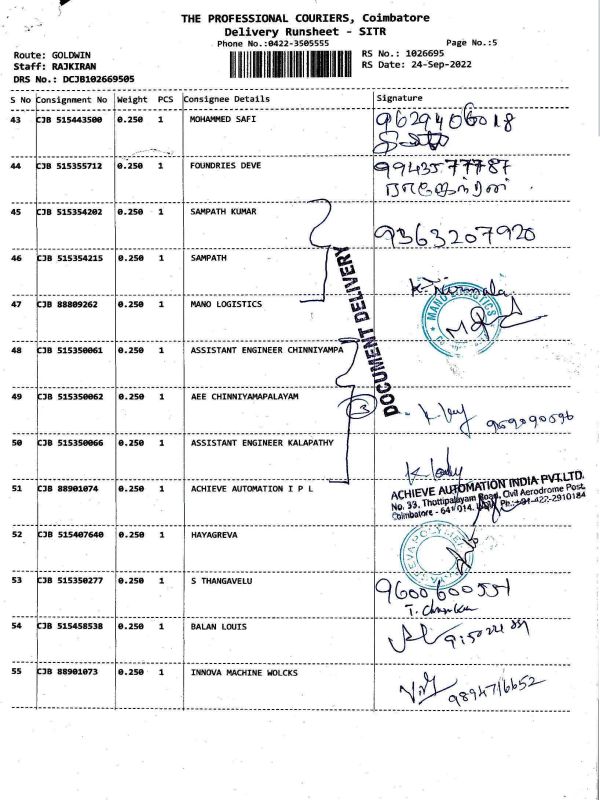 THE PROFESSIONAL COURIERS, Coimbatore
Delivery Runsheet - SITR
Phone No.:0422-3505555
Page No.:5
Route: GOLDWIN
RS No.: 1026695
Staff: RAJKIRAN
RS Date: 24-Sep-2022
DRS No.: DCJB102669505
S No Consignment No Weight PCS Consignee Details Signature
43 CJB 515443500 0.250 1 MOHAMMED SAFI 9629406018
44 CJB 515355712 0.250 1 FOUNDRIES DEVE 9943577787
45 CJB 515354202 0.250 1 SAMPATH KUMAR 9363207920
46 CJB 515354215 0.250 1 SAMPATH
K. Nirmala
47 CJB 88809262 0.250 1 MANO LOGISTICS
MANO LOGISTICS
DOCUMENT DELIVERY
48 CJB 515350061 0.250 1 ASSISTANT ENGINEER CHINNIYAMPA
49 CJB 515350062 0.250 1 AEE CHINNIYAMAPALAYAM
3
50 CJB 515350066 0.250 1 ASSISTANT ENGINEER KALAPATHY
51 CJB 88901074 0.250 1 ACHIEVE AUTOMATION I P L
ACHIEVE AUTOMATION INDIA PVT.LTD.
No. 33, Thottipalayam Road, Civil Aerodrome Post,
Coimbatore - 641 014. Ph.:+91-422-2910184
52 CJB 515407640 0.250 1 HAYAGREVA
53 CJB 515350277 0.250 1 S THANGAVELU
54 CJB 515458538 0.250 1 BALAN LOUIS
55 CJB 88901073 0.250 1 INNOVA MACHINE WOLCKS 9894716652